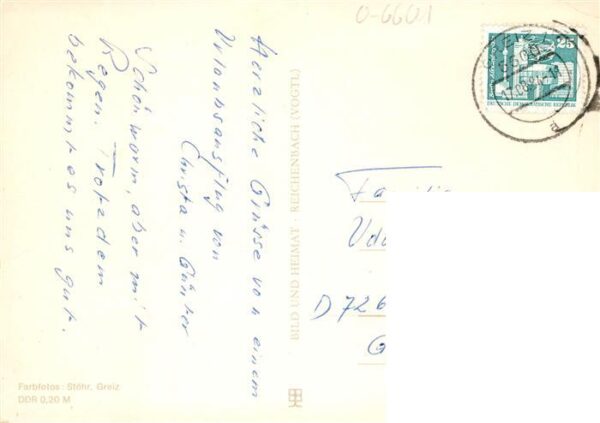 0-6601
GREIZ 1
6600
17.06.8
a
25
DEUTSCHE DEMOKRATISCHE REPUBLIK
Herzliche Grüsse von einem
Urlaubsausflug von
Christa u. Günter
Schön warm, aber mit
Regen. Trotzdem
bekommt es uns gut.
BILD UND HEIMAT · REICHENBACH (VOGTL)
Familie
Udo
D 726
G
Farbfotos: Stöhr, Greiz
DDR 0,20 M